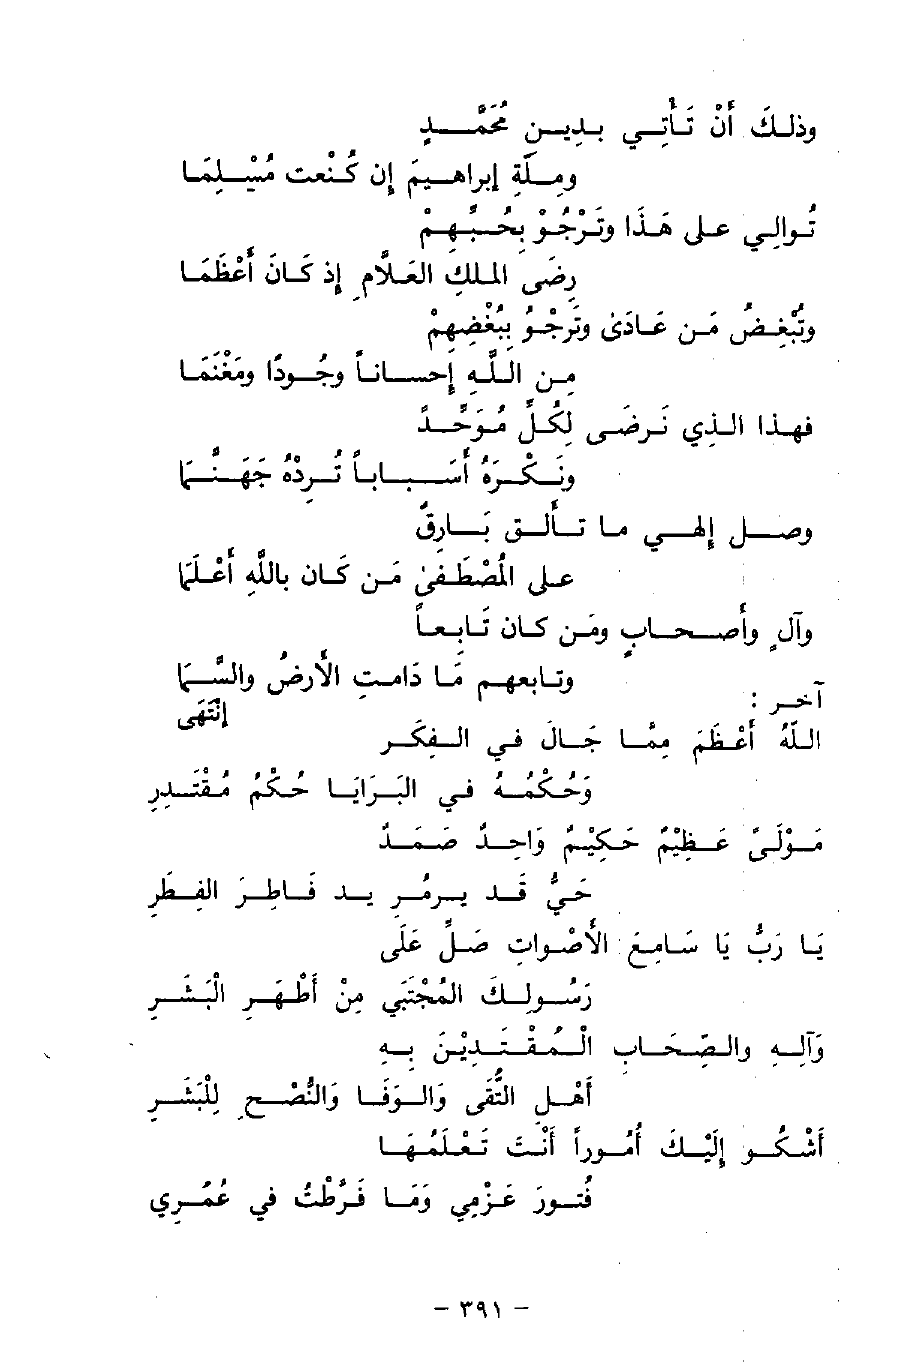 وذلكَ أَنْ تَأْتِي بِدِينِ مُحَمَّدٍ
ومِلَّةِ إبراهيمَ إن كُنْت مُسْلِمَا
تُوالِي على هَذَا وتَرْجُوْ بِحُبِّهِمْ
رِضَى الملكِ العَلَّامِ إذ كَانَ أَعْظَمَا
وتُبْغِضُ مَن عَادَىٰ وتَرجُو بِبُغْضِهِمْ
مِن اللَّهِ إحساناً وجُودًا ومَغْنَمَا
فهذا الذي نَرضَى لِكُلِّ مُوَحِّدٍ
ونَكْرَهُ أَسْبَاباً تُرِدْهُ جَهَنَّمَا
وصل إلهي ما تألق بَارِقٌ
على المُصْطَفىٰ مَن كَان باللَّهِ أَعْلَمَا
وآلٍ وأصحابٍ ومَن كان تَابِعاً
وتابعهم مَا دَامتِ الأرضُ والسَّمَا
آخر :
إنْتَهَى
اللَّهُ أَعْظَمُ مِمَّا جَالَ في الفِكَرِ
وَحُكْمُهُ في البَرَايَا حُكْمُ مُقْتَدِرِ
مَوْلَىً عَظِيْمٌ حَكِيْمٌ وَاحِدٌ صَمَدٌ
حَيٌّ قَدِيرٌ مُرِيد فَاطِرَ الفِطَرِ
يَا رَبُّ يَا سَامِعَ الأَصْواتِ صَلِّ عَلَى
رَسُولِكَ المُجْتَبَي مِنْ أَطْهَرِ الْبَشَرِ
وَآلِهِ والصِّحَابِ الْمُقْتَدِيْنَ بِهِ
أَهْلِ التُّقَى وَالوَفَا وَالنُّصْحِ لِلْبَشَرِ
أَشْكُو إِلَيْكَ أُمُوراً أَنْتَ تَعْلَمُهَا
فُتُورَ عَزْمِي وَمَا فَرَّطْتُ في عُمُرِي
- ٣٩١ -